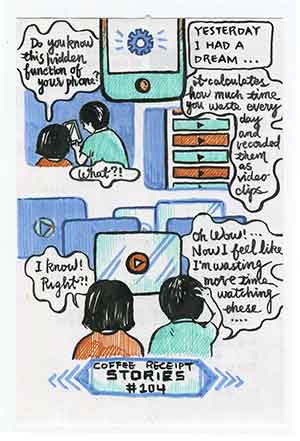 YESTERDAY
I HAD A
DREAM ...
Do you know
this hidden
function of
your phone?
What?!
it calculates
how much time
you waste every
day
and
recorded
them
as
video
clips
I know!
Right?!
Oh Wow! ...
Now I feel like
I'm wasting
more time
watching
these
....
COFFEE RECEIPT
STORIES
#104